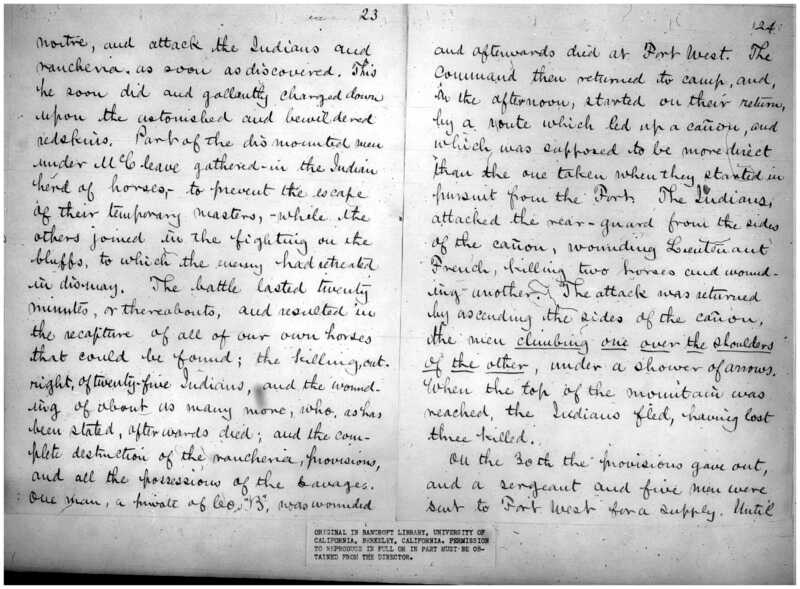 23
noitre, and attack the Indians and
rancheria. as soon as discovered. This
he soon did and gallantly charged down
upon the astonished and bewildered
redskins. Part of the dismounted men
under McCleave gathered in the Indian
herd of horses,- to prevent the escape
of their temporary masters, -while the
others joined in the fighting on the
bluffs, to which the enemy had retreated
in dismay. The battle lasted twenty
minutes, or thereabouts, and resulted in
the recapture of all of our own horses
that could be found; the killing, out-
right, of twenty-five Indians, and the wound-
ing of about as many more, who, as has
been stated, afterwards died; and the com-
plete destruction of the rancheria, provisions,
and all the possessions of the savages.
One man, a private of Co. "B", was wounded
24
and afterwards died at Fort West. The
Command then returned to camp, and,
in the afternoon, started on their return,
by a route which led up a cañon, and
which was supposed to be more direct
than the one taken when they started in
pursuit from the Fort. The Indians,
attacked the rear-guard from the sides
of the cañon, wounding Lieutenant
French, killing two horses and wound-
ing another. The attack was returned
by ascending the sides of the cañon,
the men climbing one over the shoulders
of the other, under a shower of arrows.
When the top of the mountain was
reached, the Indians fled, having lost
three killed.
On the 30th the provisions gave out,
and a sergeant and five men were
sent to Fort West for a supply. Until
ORIGINAL IN BANCROFT LIBRARY, UNIVERSITY OF
CALIFORNIA, BERKELEY, CALIFORNIA. PERMISSION
TO REPRODUCE IN FULL OR IN PART MUST BE OB-
TAINED FROM THE DIRECTOR.